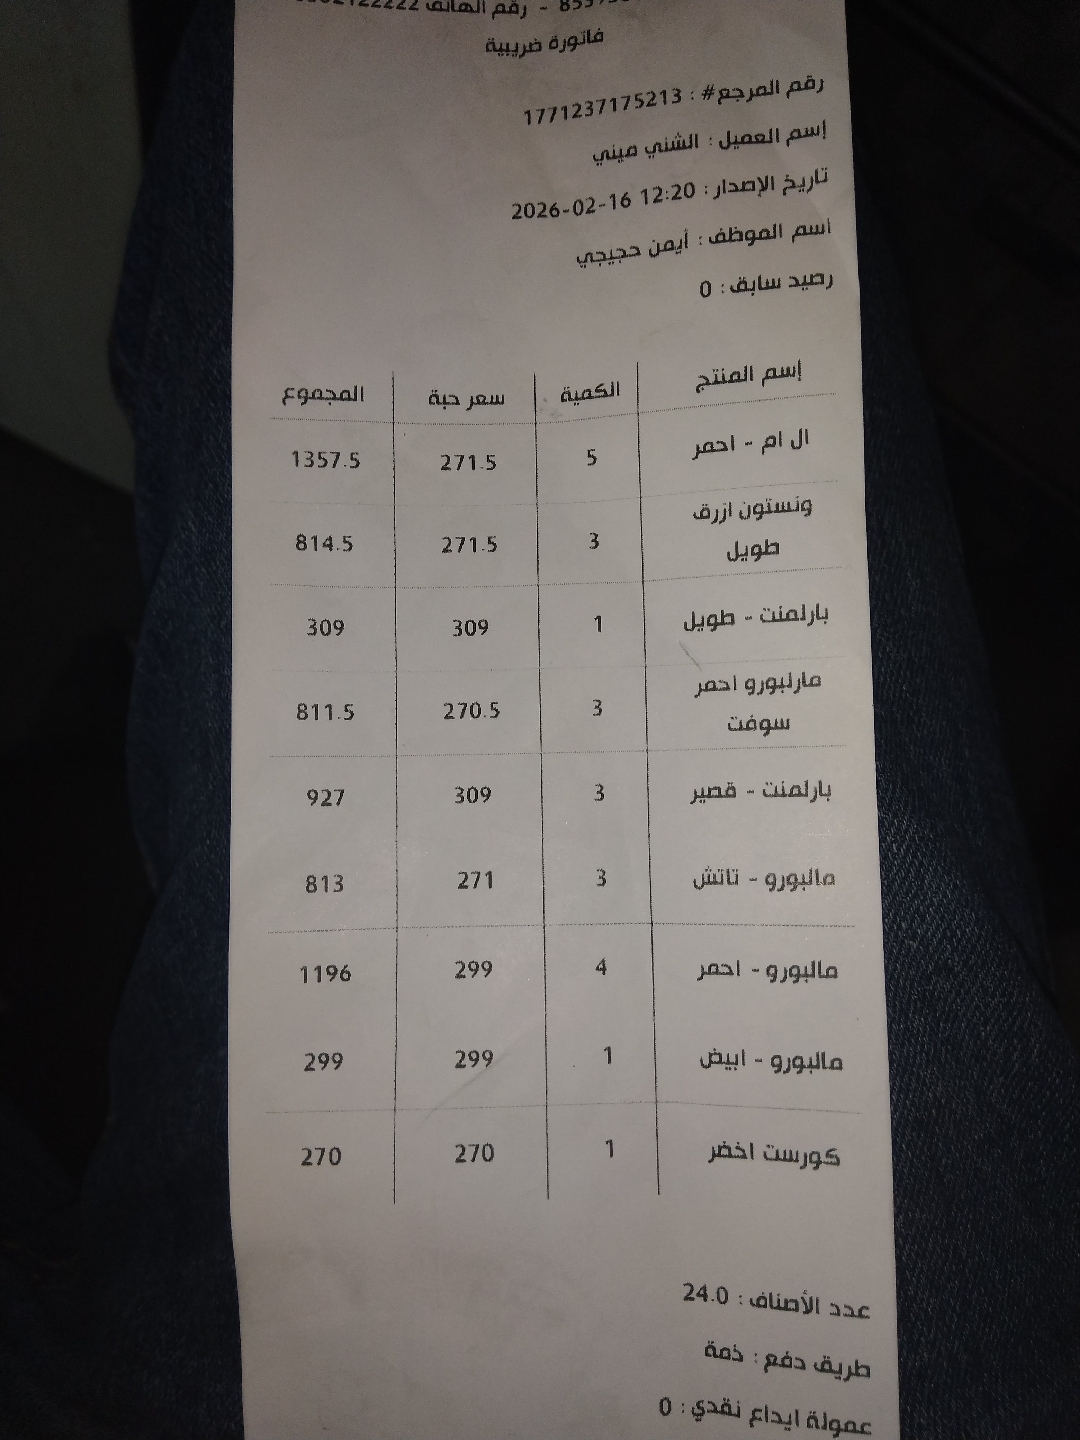 رقم الهاتف
فاتورة ضريبية
رقم المرجع# : 1771237175213
إسم العميل : الشني ميني
تاريخ الإصدار : 2026-02-16 12:20
اسم الموظف : أيمن حجيجي
رصيد سابق : 0
إسم المنتج الكمية سعر حبة المجموع
ال ام - احمر 5 271.5 1357.5
ونستون ازرق طويل 3 271.5 814.5
بارلمنت - طويل 1 309 309
مارلبورو احمر سوفت 3 270.5 811.5
بارلمنت - قصير 3 309 927
مالبورو - تاتش 3 271 813
مالبورو - احمر 4 299 1196
مالبورو - ابيض 1 299 299
كورست اخضر 1 270 270
عدد الأصناف : 24.0
طريق دفع : ذمة
عمولة ايداع نقدي : 0